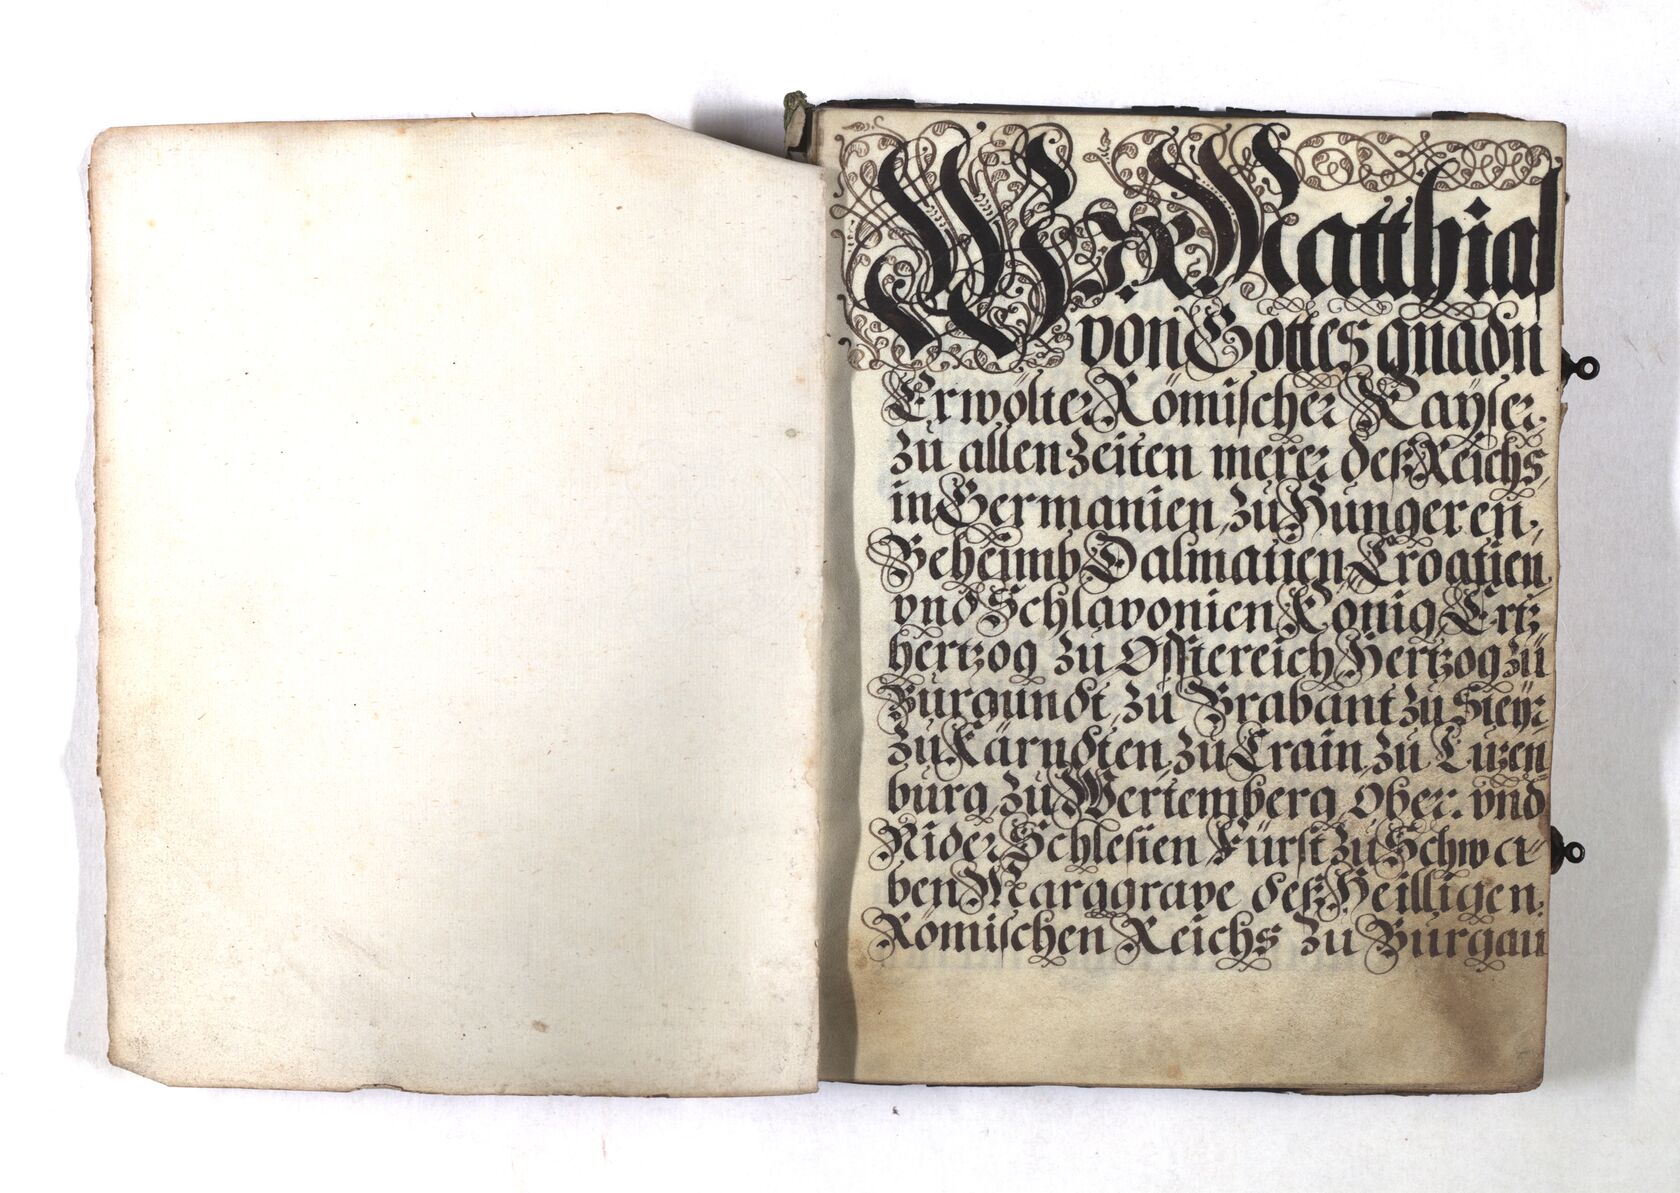 Wir Matthias
von Gottes gnadn
Erwölter Römischer Kayser,
zu allen Zeiten merer deß Reichs,
in Germanien, zu Hungeren,
Beheimb Dalmatien, Croatien
vnd Schlavonien König, Ertz
hertzog zu Össtereich Hertzog zü
Burgundt, zu Brabant zu Steyr
zu Kärndten, zu Crain, zu Luzen
burg, zu Wertemberg, Ober: vnd
Nider Schlesien, Fürst zu Schwa-
ben Marggrave deß Heilligen,
Römischen Reichs zu Burgau